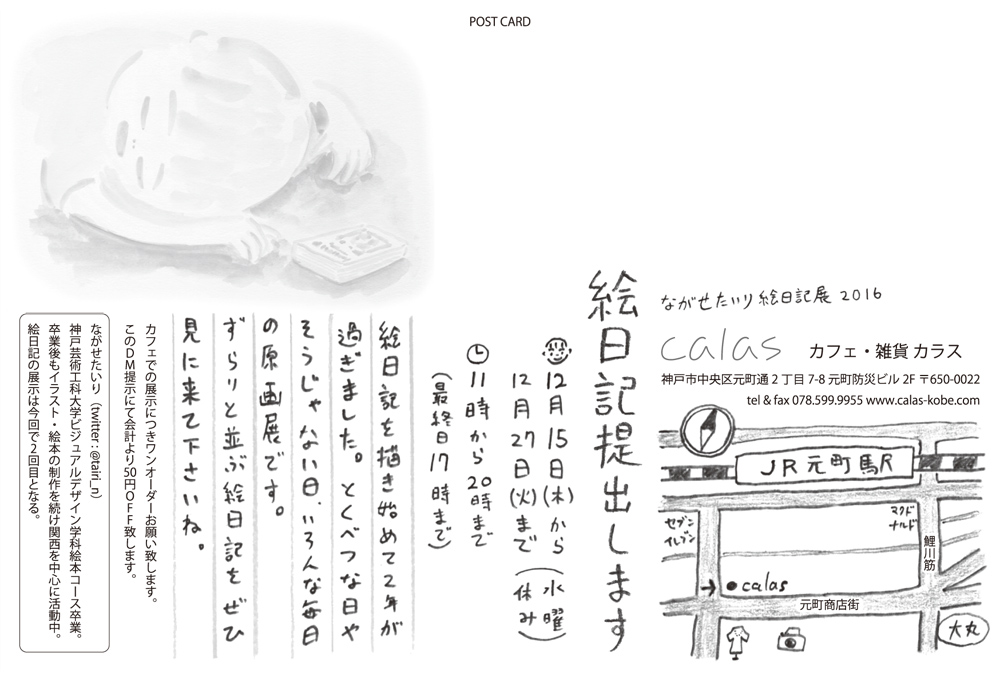 POST CARD
ながせたいり絵日記展 2016
calas カフェ・雑貨 カラス
神戸市中央区元町通2丁目7-8 元町防災ビル 2F 〒650-0022
tel & fax 078.599.9955 www.calas-kobe.com
JR元町駅
セブン
イレブン
マクド
ナルド
鯉川筋
calas
元町商店街
大丸
絵日記提出します
12月15日(木)から
12月27日(火)まで
(水曜
休み)
11時から20時まで
(最終日17時まで)
絵日記を描き始めて2年が
過ぎました。とくべつな日や
そうじゃない日、いろんな毎日
の原画展です。
ずらりと並ぶ絵日記をぜひ
見に来て下さいね。
カフェでの展示につきワンオーダーお願い致します。
このDM提示にて会計より50円OFF致します。
ながせたいり(twitter:@tairi_n)
神戸芸術工科大学ビジュアルデザイン学科絵本コース卒業。
卒業後もイラスト・絵本の制作を続け関西を中心に活動中。
絵日記の展示は今回で2回目となる。